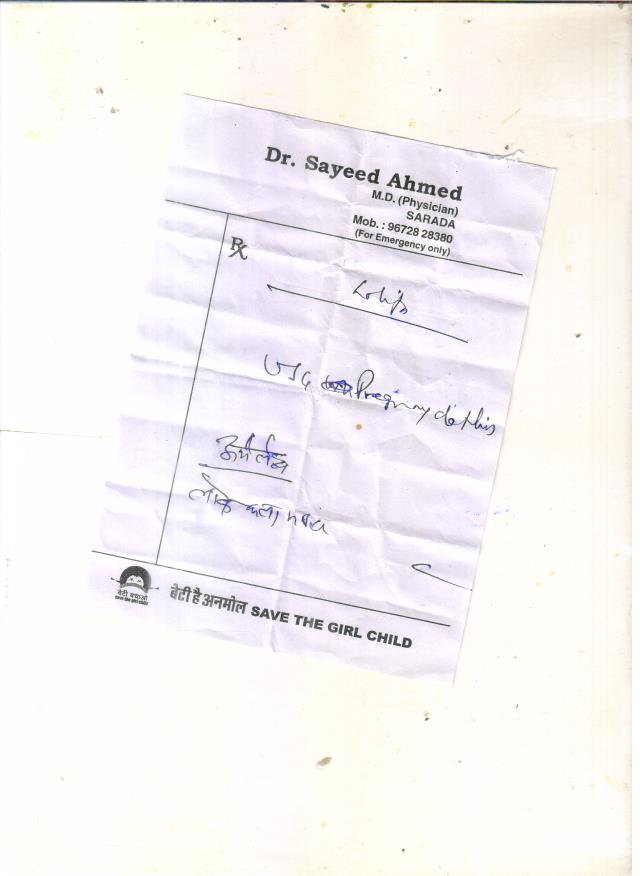 Dr. Sayeed Ahmed
M.D. (Physician)
SARADA
Mob. : 96728 28380
(For Emergency only)
Rx
USG Pregnancy
लोक कला
बेटी बचाओ
save the girl child
बेटी है अनमोल SAVE THE GIRL CHILD